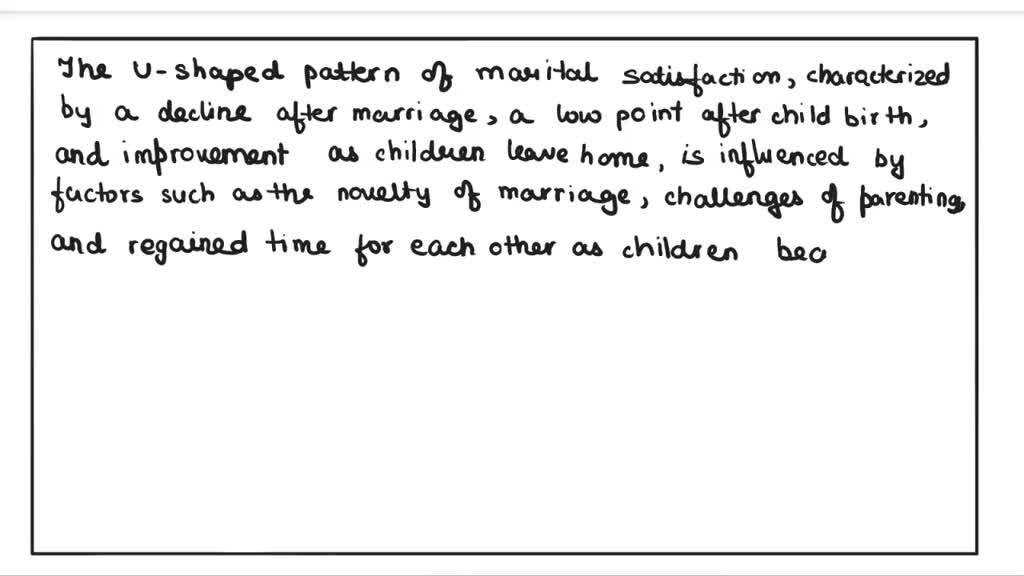 The U-shaped pattern of marital satisfaction, characterized
by a decline after marriage, a low point after child birth,
and improvement as children leave home, is influenced by
factors such as the novelty of marriage, challenges of parenting,
and regained time for each other as children bec